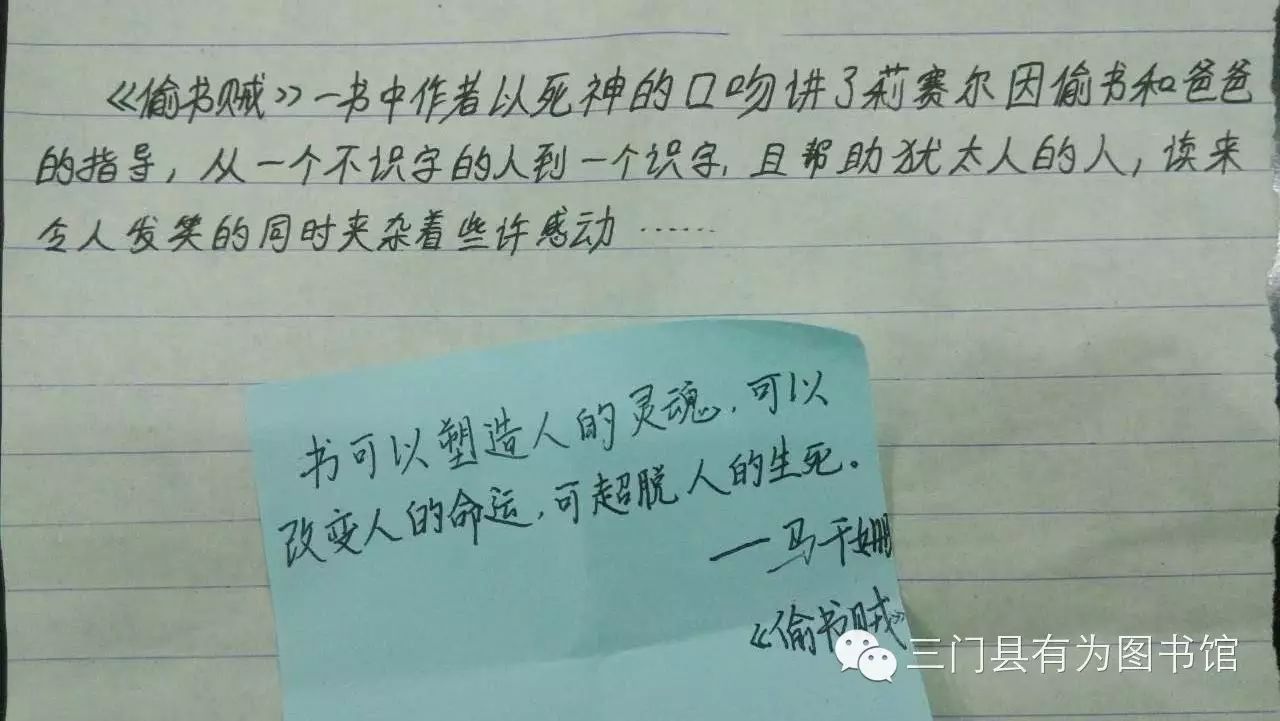 《偷书贼》一书中作者以死神的口吻讲了莉赛尔因偷书和爸爸
的指导，从一个不识字的人到一个识字，且帮助犹太人的人，读来
令人发笑的同时夹杂着些许感动……
书可以塑造人的灵魂，可以
改变人的命运，可超脱人的生死。
——马千姗
《偷书贼》
三门县有为图书馆